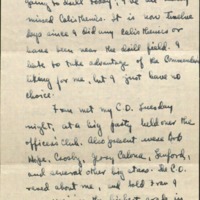 going to drill today, I've got many
missed Calisthenics. It is now twelve
days since I did any calisthenics or
have been near the drill field. I
hate to take advantage of the Commander
liking for me, but I just have no
choice!
Fran met my C.O. Tuesday
night, at a big party held over the
officers club. Also present were Bob
Hope, Crosby, Jerry Colonna,
and several other big stars. The C.O.
raved about me, and told Fran I
the highest grade in